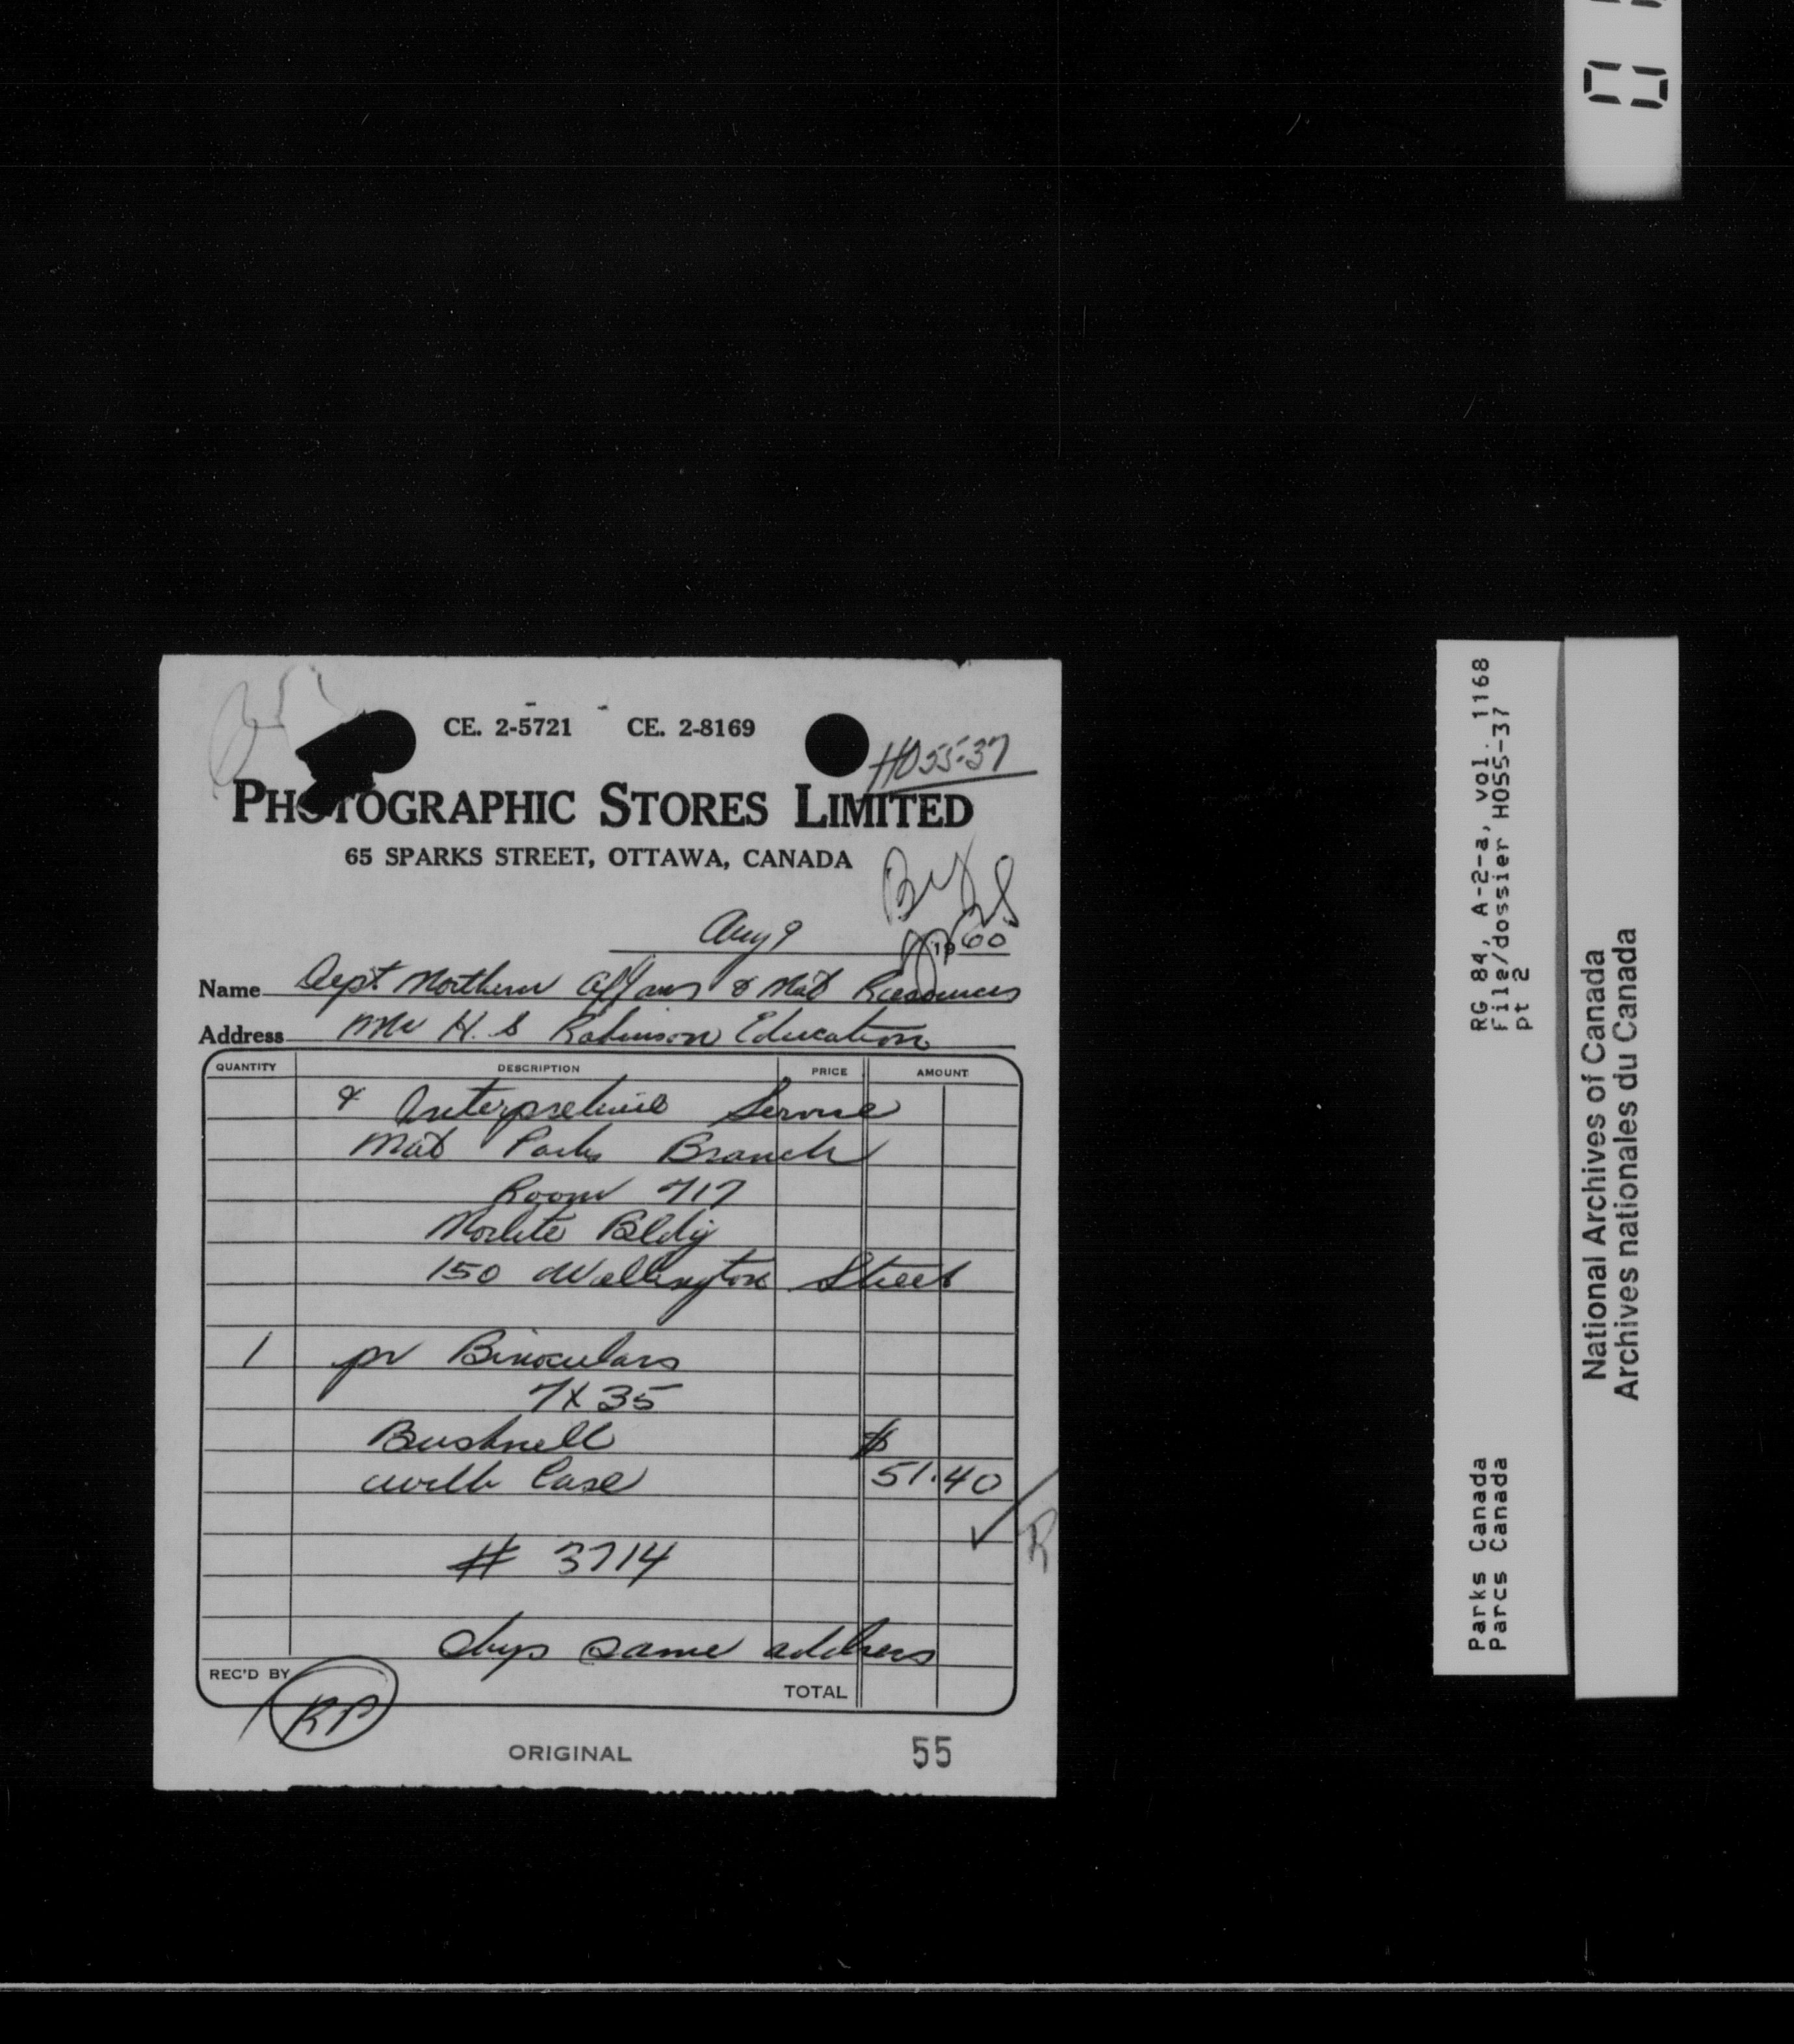 CE. 2-5721 CE. 2-8169
HO55-37
PHOTOGRAPHIC STORES LIMITED
65 SPARKS STREET, OTTAWA, CANADA
Aug 9 1960
Name Dept. Northern Affairs & Nat Resources
Address Mr H. S Robinson Education
QUANTITY DESCRIPTION PRICE AMOUNT
& Interpretive Service
Nat Parks Branch
Room 717
Norlite Bldg
150 Wellington Street
1 pr Binoculars
7X35
Bushnell $
with Case 51.40
# 3714
Ship same address
REC'D BY RP TOTAL
ORIGINAL 55
RG 84, A-2-a, vol. 1168
File/dossier HO55-37
pt 2
Parks Canada
Parcs Canada
National Archives of Canada
Archives nationales du Canada